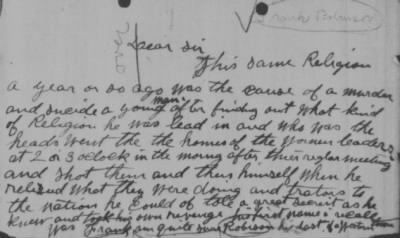 Frank Robinson
Dear Sir
This same Religion
a year or so ago was the cause of a murder
and suicide a young man after finding out what kind
of Religion he was lead in and who was the
heads went the the homes of the women leaders
at 2 or 3 oclock in the morning after their reglar meeting
and shot them and then himself when he
relized what they were doing and trators to
the nation he could of told a great secret as he
knew and took his own revenge his first name I recall
was Frank am quite sure Robison he last of